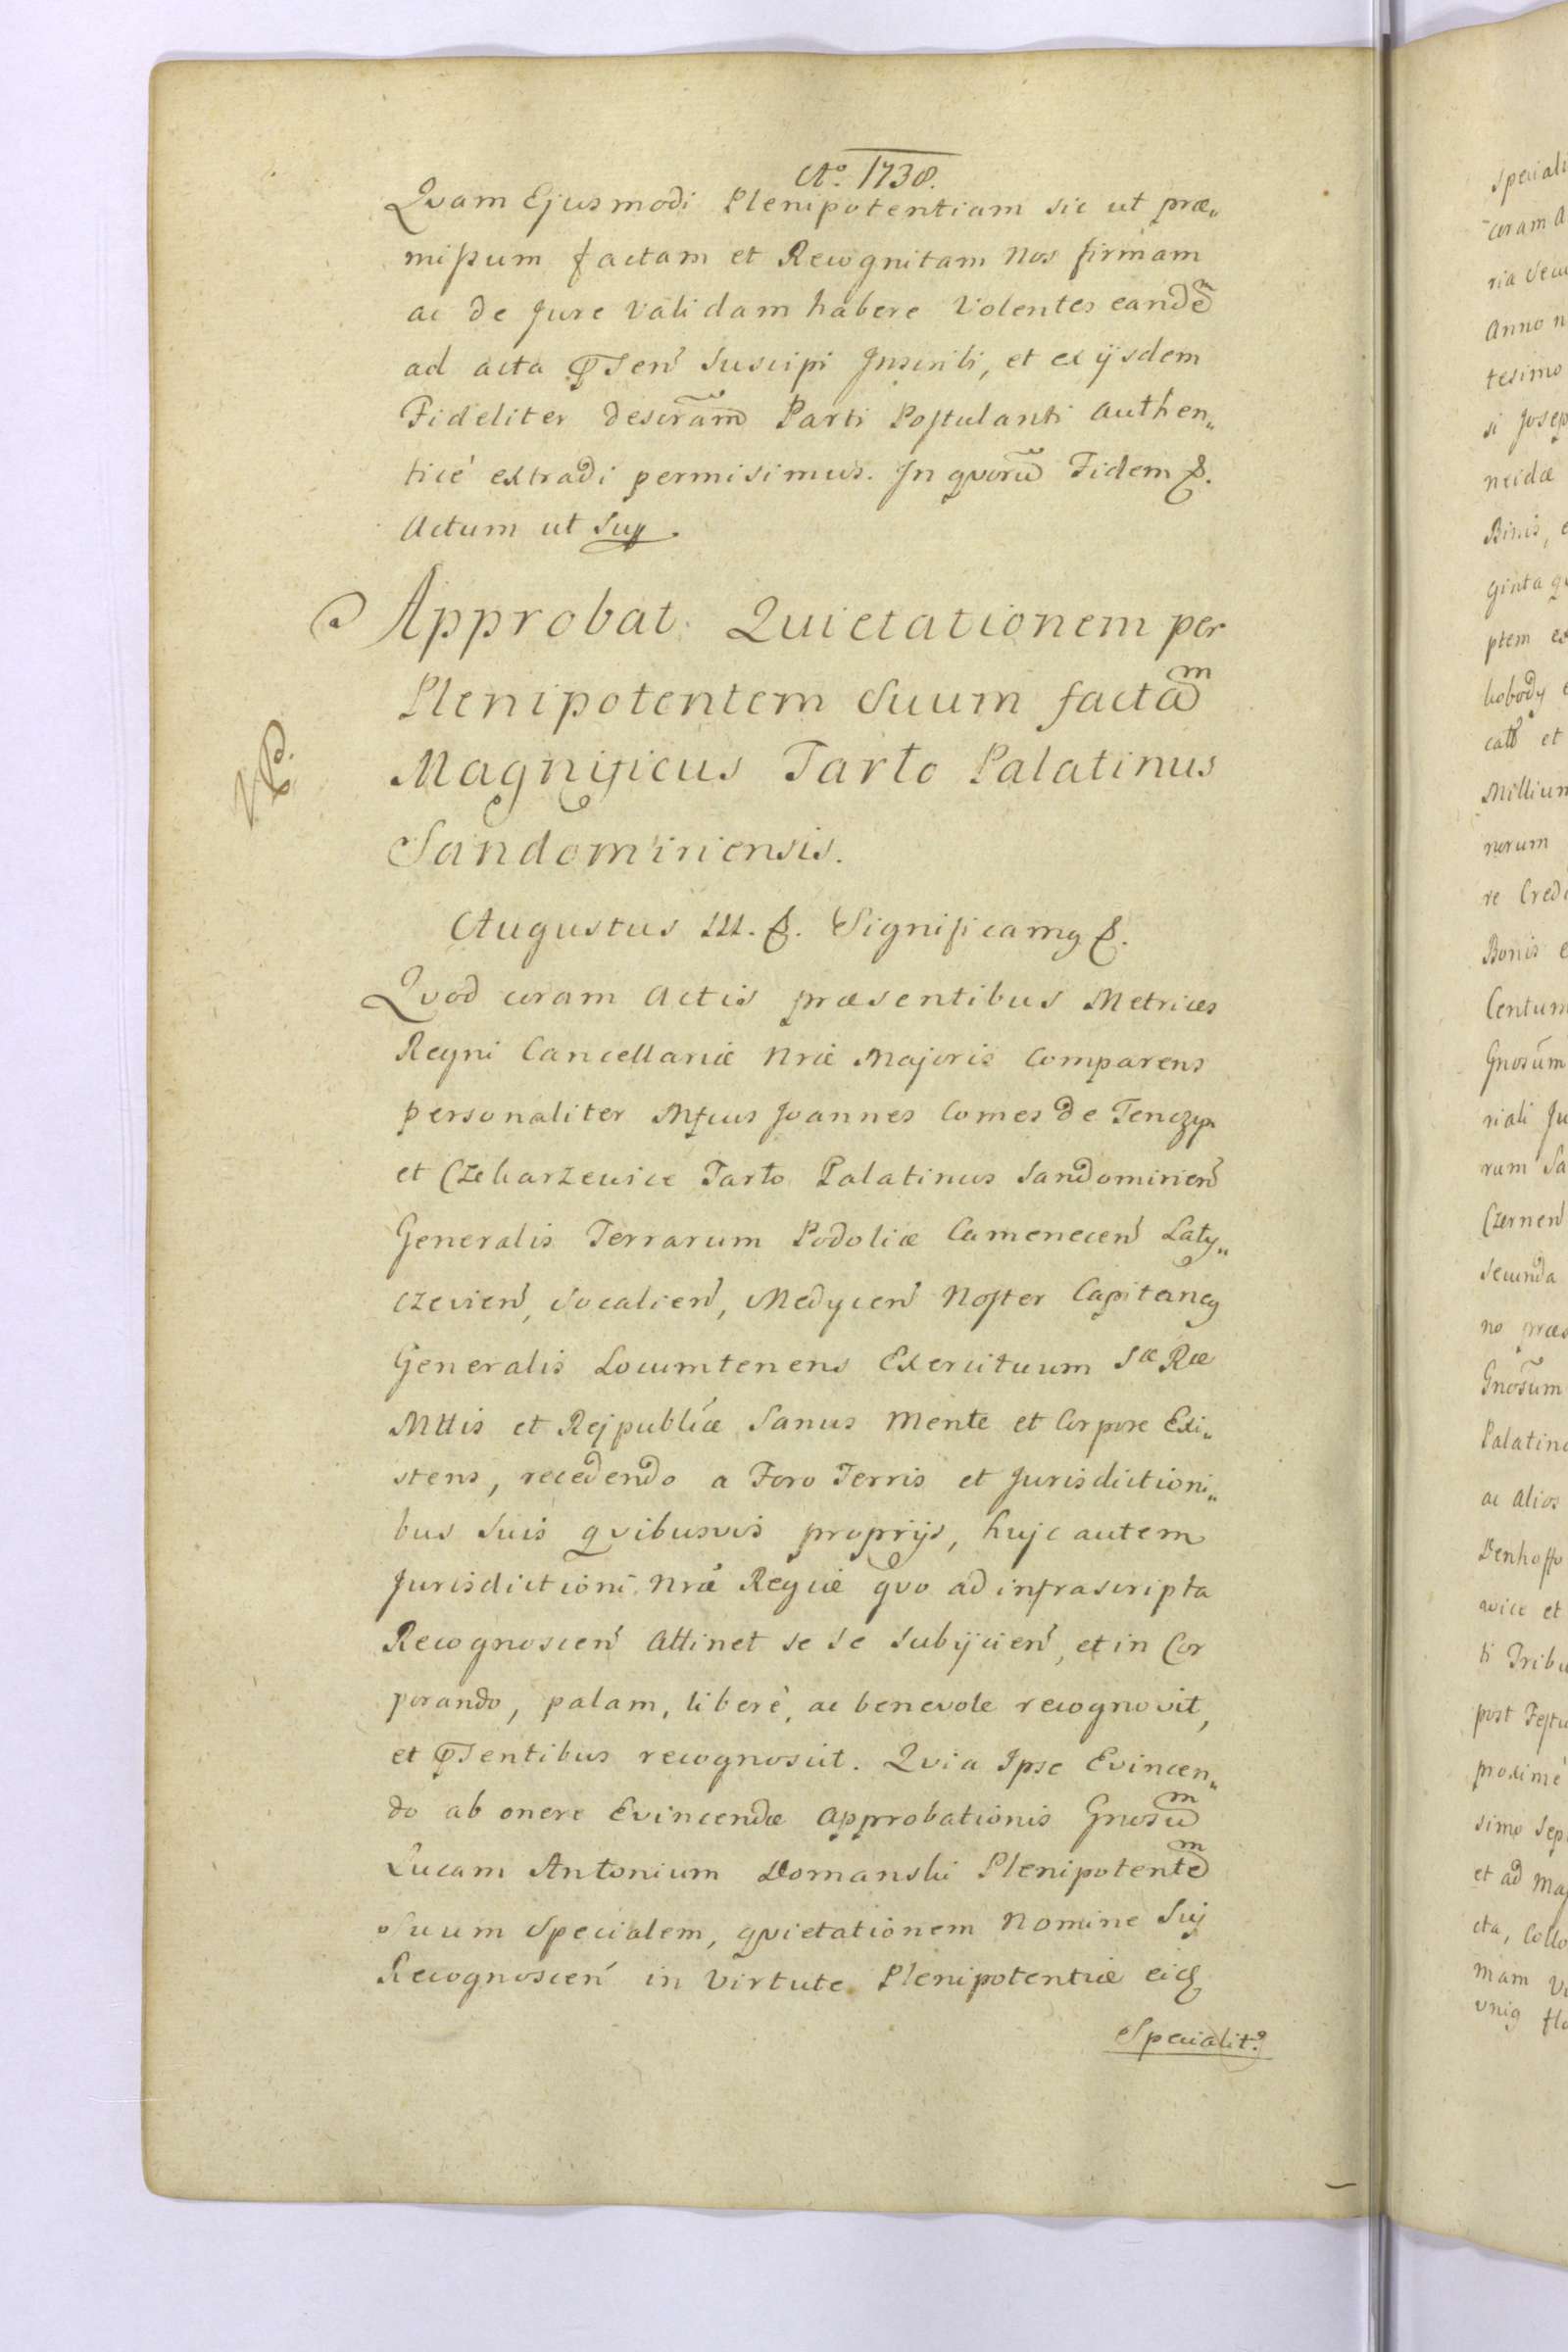 Ao. 1738.
Qvam Ejusmodi Plenipotentiam sic ut præ„
mißum factam et Recognitam Nos firmam
ac de Jure validam habere Volentes eandem
ad acta pñsen suscipi Inscribi, et ex ijsdem
Fideliter descrãm Parti Postulanti Authen„
ticè extradi permisimus. In qvorũ Fidem &.
Actum ut sup.
Approbat Quietationem per
Plenipotentem Suum factam
Magnificus Tarło Palatinus
Sandomiriensis.
Augustus III. &. Significamg &.
Qvod coram Actis præsentibus Metrices
Regni Cancellariæ Nræ Majoris Comparens
personaliter Mfcus Joannes Comes de Tenczyn
et Czekarzewice Tarło Palatinus Sandomirien
Generalis Terrarum Podoliæ Camenecen Laty„
czevien, Socalien, Medycen Noster Capitaneg
Generalis Locumtenens Exercituum Sæ Ræ
Mttis et Rejpublicæ Sanus Mente et Corpore Exi„
stens, recedendo a Foro Terris et Jurisdictioni„
bus suis qvibusvis proprijs, hujc autem
Jurisdictioni Nræ Regiæ qvo ad infrascripta
Recognoscen attinet se se subijcien, et in Cor
porando, palam, liberè, ac benevole recognovit,
et pñsentibus recognoscit. Qvia Ipse Evincen„
do ab onere Evincendæ approbationis Gnosum
Lucam Antonium Domanski Plenipotentem
Suum Specialem, qvietationem Nomine Suj
Recognoscen in Virtute Plenipotentiæ eidem
Specialit.

speciali
coram A
ria
Anno n
tesimo
si Josep
neidæ
Binis, e
ginta qv
ptem ex
et
Million
norum
re Credi
Bonis e
Centum
Gnosum
riali Ju
rum Sa
Czernen
secunda
no præs
Gnosum
Palatino
ac alios
Denhoffo
wice et
ti Tribu
post Festu
proximè
simo Sep
et ad Maj
cta, Collo
mam